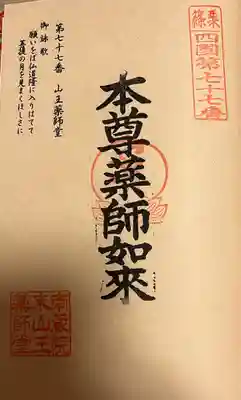 篠栗
四國第七十七番
本尊薬師如來
第七十七番　山王薬師堂
御詠歌
願いをば仏道隆に入りはてて
菩提の月を見まくほしさに
山王
薬師堂